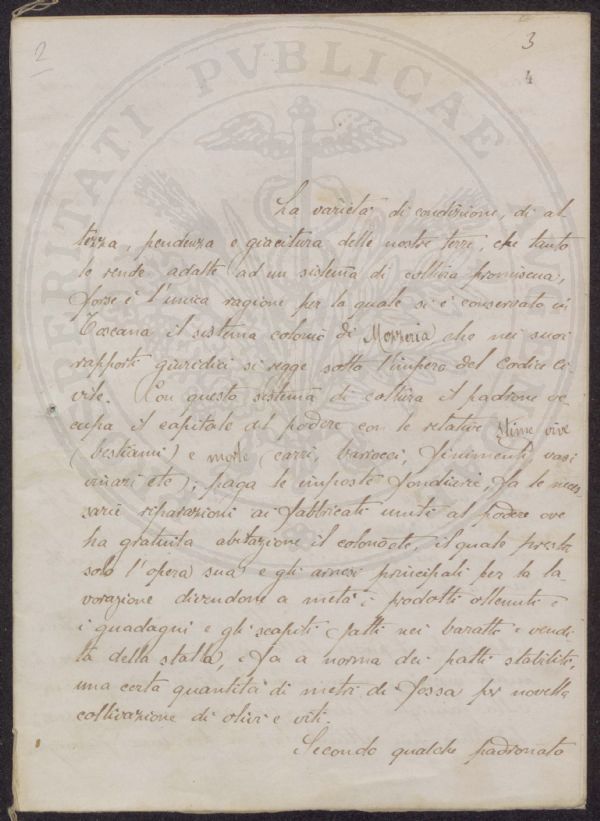 2
3
4
PROSPERITATI PVBLICAE
La varietà di condizione, di al
tezza, pendenza e giacitura delle nostre terre, che tanto
le rende adatte ad un sistema di coltura promiscua,
forse è l'unica ragione per la quale si è conservato in
Toscana il sistema colonio di Mezzeria che nei suoi
rapporti giuridici si regge sotto l'impero del Codice Ci-
vile. Con questo sistema di coltura il padrone oc
cupa il capitale del podere con le relative stime vive
(bestiami) e morte (carri, barrocci, finimenti, vasi
vinari etc); paga le imposte fondiarie, fa le neces
sarie riparazioni ai fabbricati uniti al podere ove
ha gratuita abitazione il colono etc, il quale presta
solo l'opera sua e gli arnesi principali per la la-
vorazione dividendone a metà i prodotti ottenuti e
i guadagni e gli scapiti fatti nei baratti e vendi
ta della stalla, fa a norma dei patti stabiliti,
una certa quantità di metri di fossa per novella
coltivazione di olivi e viti.
Secondo qualche padronato